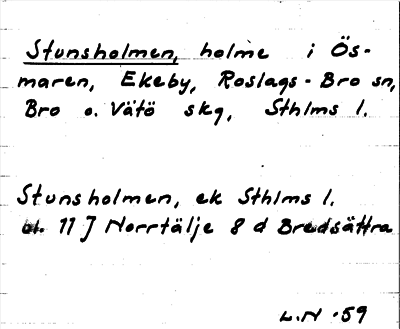 Stunsholmen, holme i Ös-
maren, Ekeby, Roslags-Bro sn,
Bro o. Vätö skg, Sthlms l.
Stunsholmen, ek Sthlms l.
bl. 11 J Norrtälje 8 d Bredsättra
L.N -59